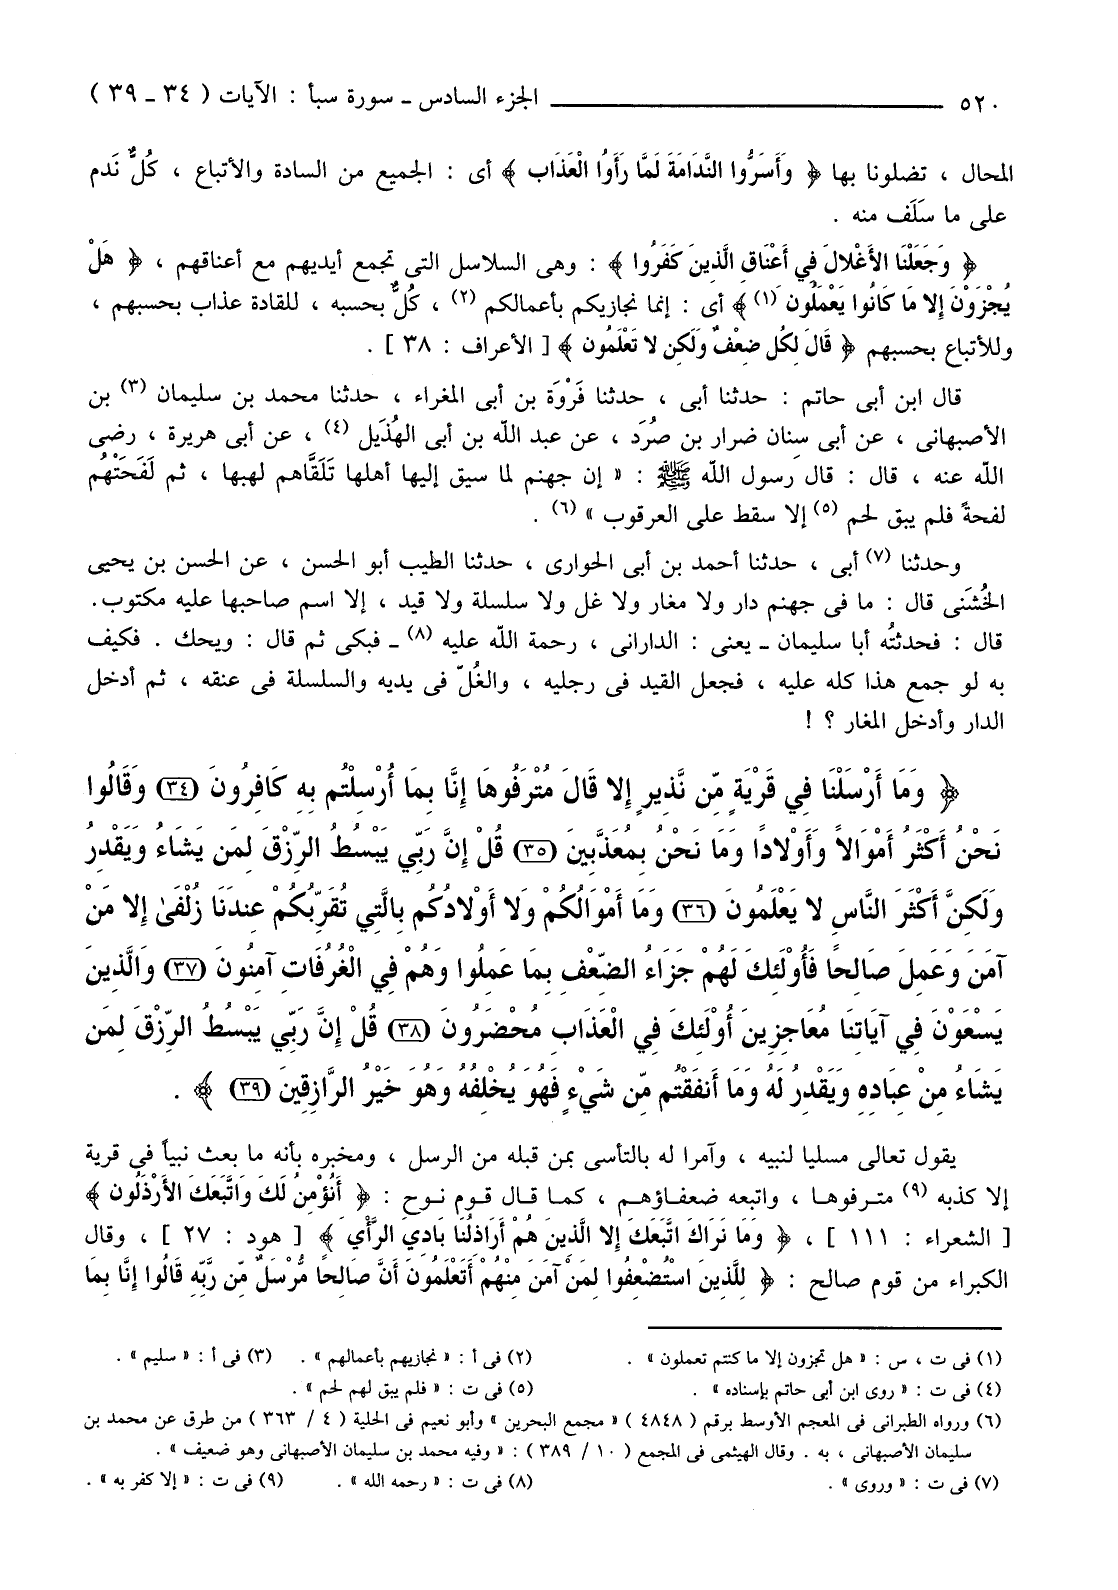 ٥٢٠ ــــــــ الجزء السادس ـ سورة سبأ : الآيات ( ٣٤ ـ ٣٩ )
المحال ، تضلونا بها ﴿ وَأَسَرُّوا النَّدَامَةَ لَمَّا رَأَوُا الْعَذَاب ﴾ أى : الجميع من السادة والأتباع ، كُلٌّ نَدم
على ما سَلَف منه .
﴿ وَجَعَلْنَا الأَغْلالَ فِي أَعْنَاقِ الَّذِينَ كَفَرُوا ﴾ : وهى السلاسل التى تجمع أيديهم مع أعناقهم ، ﴿ هَلْ
يُجْزَوْنَ إِلا مَا كَانُوا يَعْمَلُون (١) ﴾ أى : إنما نجازيكم بأعمالكم (٢) ، كُلٌّ بحسبه ، للقادة عذاب بحسبهم ،
وللأتباع بحسبهم ﴿ قَالَ لِكُلٍّ ضِعْفٌ وَلَكِن لا تَعْلَمُون ﴾ [ الأعراف : ٣٨ ] .
قال ابن أبى حاتم : حدثنا أبى ، حدثنا فَرْوَة بن أبى المغراء ، حدثنا محمد بن سليمان (٣) بن
الأصبهانى ، عن أبى سِنان ضرار بن صُرَد ، عن عبد الله بن أبى الهُذَيل (٤) ، عن أبى هريرة ، رضى
اللّه عنه ، قال : قال رسول اللّه ﷺ : « إن جهنم لما سيق إليها أهلها تَلَقَّاهم لهبها ، ثم لَفَحَتْهُم
لفحةً فلم يبق لحم (٥) إلا سقط على العرقوب » (٦) .
وحدثنا (٧) أبى ، حدثنا أحمد بن أبى الحوارى ، حدثنا الطيب أبو الحسن ، عن الحسن بن يحيى
الخُشَنى قال : ما فى جهنم دار ولا مغار ولا غل ولا سلسلة ولا قيد ، إلا اسم صاحبها عليه مكتوب.
قال : فحدثتُه أبا سليمان ـ يعنى : الدارانى ، رحمة اللّه عليه (٨) ـ فبكى ثم قال : ويحك . فكيف
به لو جمع هذا كله عليه ، فجعل القيد فى رجليه ، والغُلّ فى يديه والسلسلة فى عنقه ، ثم أدخل
الدار وأدخل المغار ؟ !
﴿ وَمَا أَرْسَلْنَا فِي قَرْيَةٍ مِّن نَّذِيرٍ إِلا قَالَ مُتْرَفُوهَا إِنَّا بِمَا أُرْسِلْتُم بِهِ كَافِرُونَ (٣٤) وَقَالُوا
نَحْنُ أَكْثَرُ أَمْوَالاً وَأَوْلادًا وَمَا نَحْنُ بِمُعَذَّبِينَ (٣٥) قُلْ إِنَّ رَبِّي يَبْسُطُ الرِّزْقَ لِمَن يَشَاءُ وَيَقْدِرُ
وَلَكِنَّ أَكْثَرَ النَّاسِ لا يَعْلَمُونَ (٣٦) وَمَا أَمْوَالُكُمْ وَلا أَوْلادُكُم بِالَّتِي تُقَرِّبُكُمْ عِندَنَا زُلْفَىٰ إِلا مَنْ
آمَنَ وَعَمِلَ صَالِحًا فَأُولَئِكَ لَهُمْ جَزَاءُ الضِّعْفِ بِمَا عَمِلُوا وَهُمْ فِي الْغُرُفَاتِ آمِنُونَ (٣٧) وَالَّذِينَ
يَسْعَوْنَ فِي آيَاتِنَا مُعَاجِزِينَ أُوْلَئِكَ فِي الْعَذَابِ مُحْضَرُونَ (٣٨) قُلْ إِنَّ رَبِّي يَبْسُطُ الرِّزْقَ لِمَن
يَشَاءُ مِنْ عِبَادِهِ وَيَقْدِرُ لَهُ وَمَا أَنفَقْتُم مِّن شَيْءٍ فَهُوَ يُخْلِفُهُ وَهُوَ خَيْرُ الرَّازِقِينَ (٣٩) ﴾ .
يقول تعالى مسليا لنبيه ، وآمرا له بالتأسى بمن قبله من الرسل ، ومخبره بأنه ما بعث نبياً فى قرية
إلا كذبه (٩) مترفوها ، واتبعه ضعفاؤهم ، كما قال قوم نوح : ﴿ أَنُؤْمِنُ لَكَ وَاتَّبَعَكَ الأَرْذَلُون ﴾
[ الشعراء : ١١١ ] ، ﴿ وَمَا نَرَاكَ اتَّبَعَكَ إِلا الَّذِينَ هُمْ أَرَاذِلُنَا بَادِيَ الرَّأْي ﴾ [ هود : ٢٧ ] ، وقال
الكبراء من قوم صالح : ﴿ لِلَّذِينَ اسْتُضْعِفُوا لِمَنْ آمَنَ مِنْهُمْ أَتَعْلَمُونَ أَنَّ صَالِحًا مُّرْسَلٌ مِّن رَّبِّهِ قَالُوا إِنَّا بِمَا
(١) فى ت ، س : « هل تجزون إلا ما كنتم تعملون » . (٢) فى أ : « نجازيهم بأعمالهم » . (٣) فى أ : « سليم » .
(٤) فى ت : « روى ابن أبى حاتم بإسناده » . (٥) فى ت : « فلم يبق لهم لحم » .
(٦) ورواه الطبرانى فى المعجم الأوسط برقم ( ٤٨٤٨ ) « مجمع البحرين » وأبو نعيم فى الحلية ( ٤ / ٣٦٣ ) من طرق عن محمد بن
سليمان الأصبهانى ، به . وقال الهيثمى فى المجمع ( ١٠ / ٣٨٩ ) : « وفيه محمد بن سليمان الأصبهانى وهو ضعيف » .
(٧) فى ت : « وروى » . (٨) فى ت : « رحمه الله » . (٩) فى ت : « إلا كفر به » .